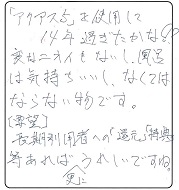 「アクアス5」を使用して
14年過ぎたかな?
変なニオイもないし、風呂
は気持ちいいし、なくては
ならない物です。
[要望]
長期利用者への「還元」「特典」
等あれば、うれしいですね。
更に